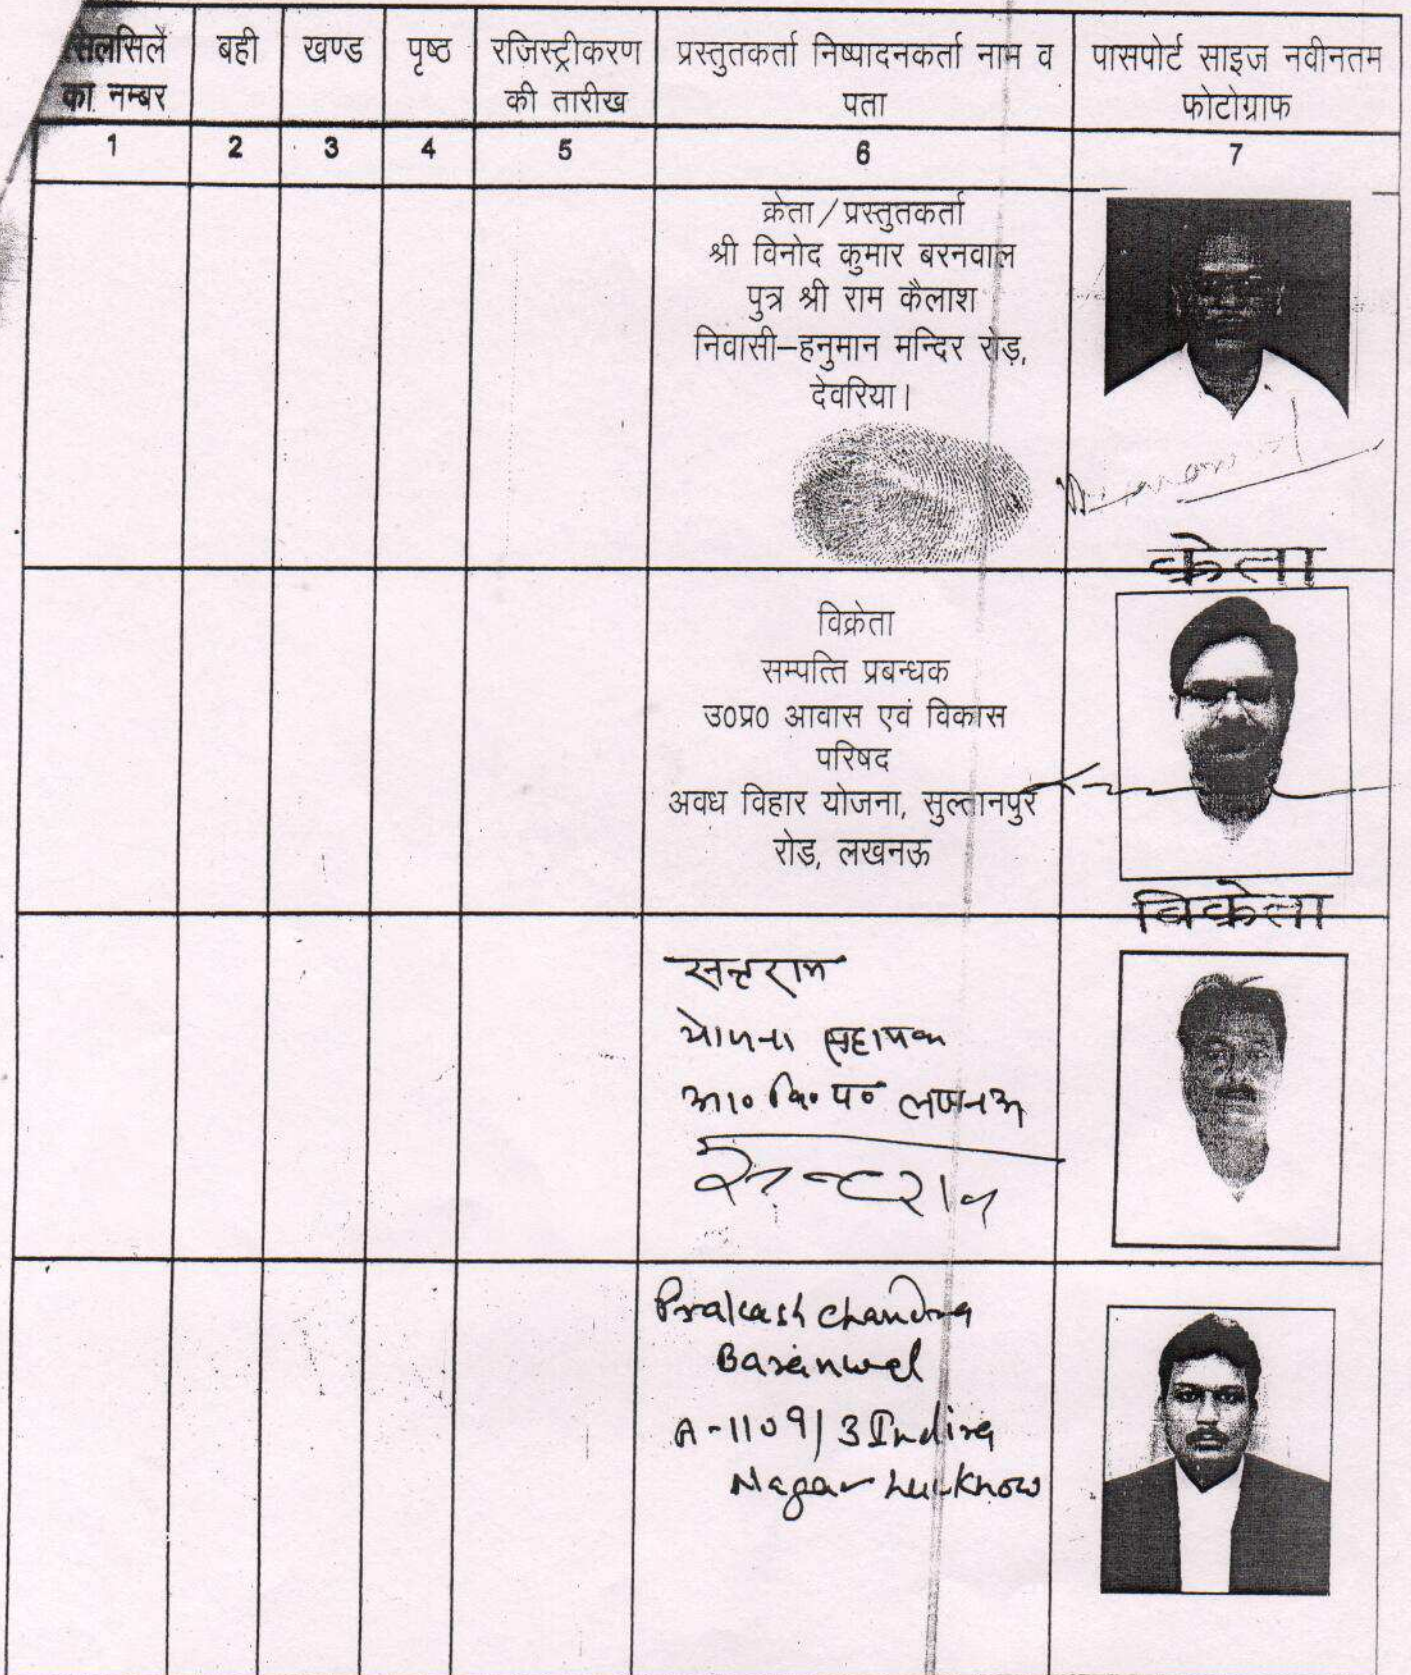 सिलसिले
का नम्बर
बही
खण्ड
पृष्ठ
रजिस्ट्रीकरण
की तारीख
प्रस्तुतकर्ता निष्पादनकर्ता नाम व
पता
पासपोर्ट साइज नवीनतम
फोटोग्राफ
1 2 3 4 5 6 7
क्रेता/प्रस्तुतकर्ता
श्री विनोद कुमार बरनवाल
पुत्र श्री राम कैलाश
निवासी–हनुमान मन्दिर रोड़,
देवरिया।
क्रेता
विक्रेता
सम्पत्ति प्रबन्धक
उ0प्र0 आवास एवं विकास
परिषद
अवध विहार योजना, सुल्तानपुर
रोड, लखनऊ
विक्रेता
सन्तराम
योजना सहायक
आ० वि० प० लखनऊ
सन्तराम
Prakash Chandra
Baranwal
A-1109/3 Indira
Nagar Lucknow